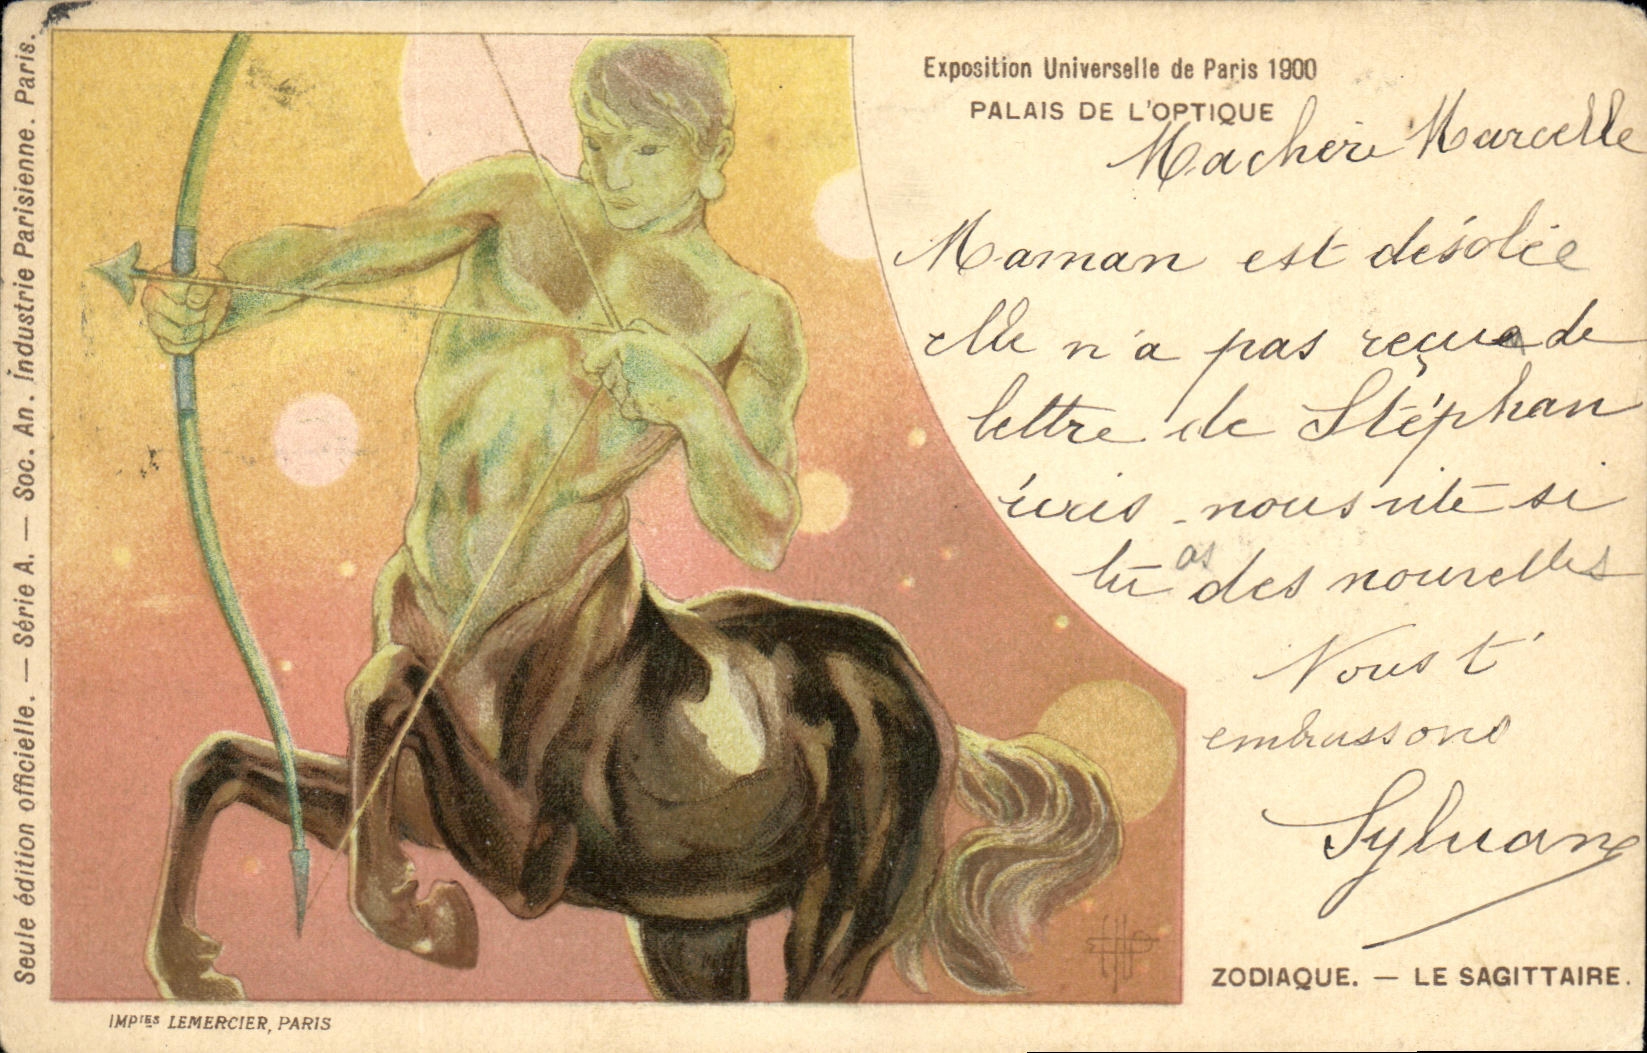 Exposition Universelle de Paris 1900
PALAIS DE L'OPTIQUE
Ma chère Marcelle
Maman est désolée
elle n'a pas reçue de
lettre de Stéphan
écris nous vite si
tu as des nouvelles
Nous t'
embrassons
Sylvane
ZODIAQUE. — LE SAGITTAIRE.
Seule édition officielle. — Série A. — Soc. An. Industrie Parisienne. Paris.
IMPIES LEMERCIER, PARIS